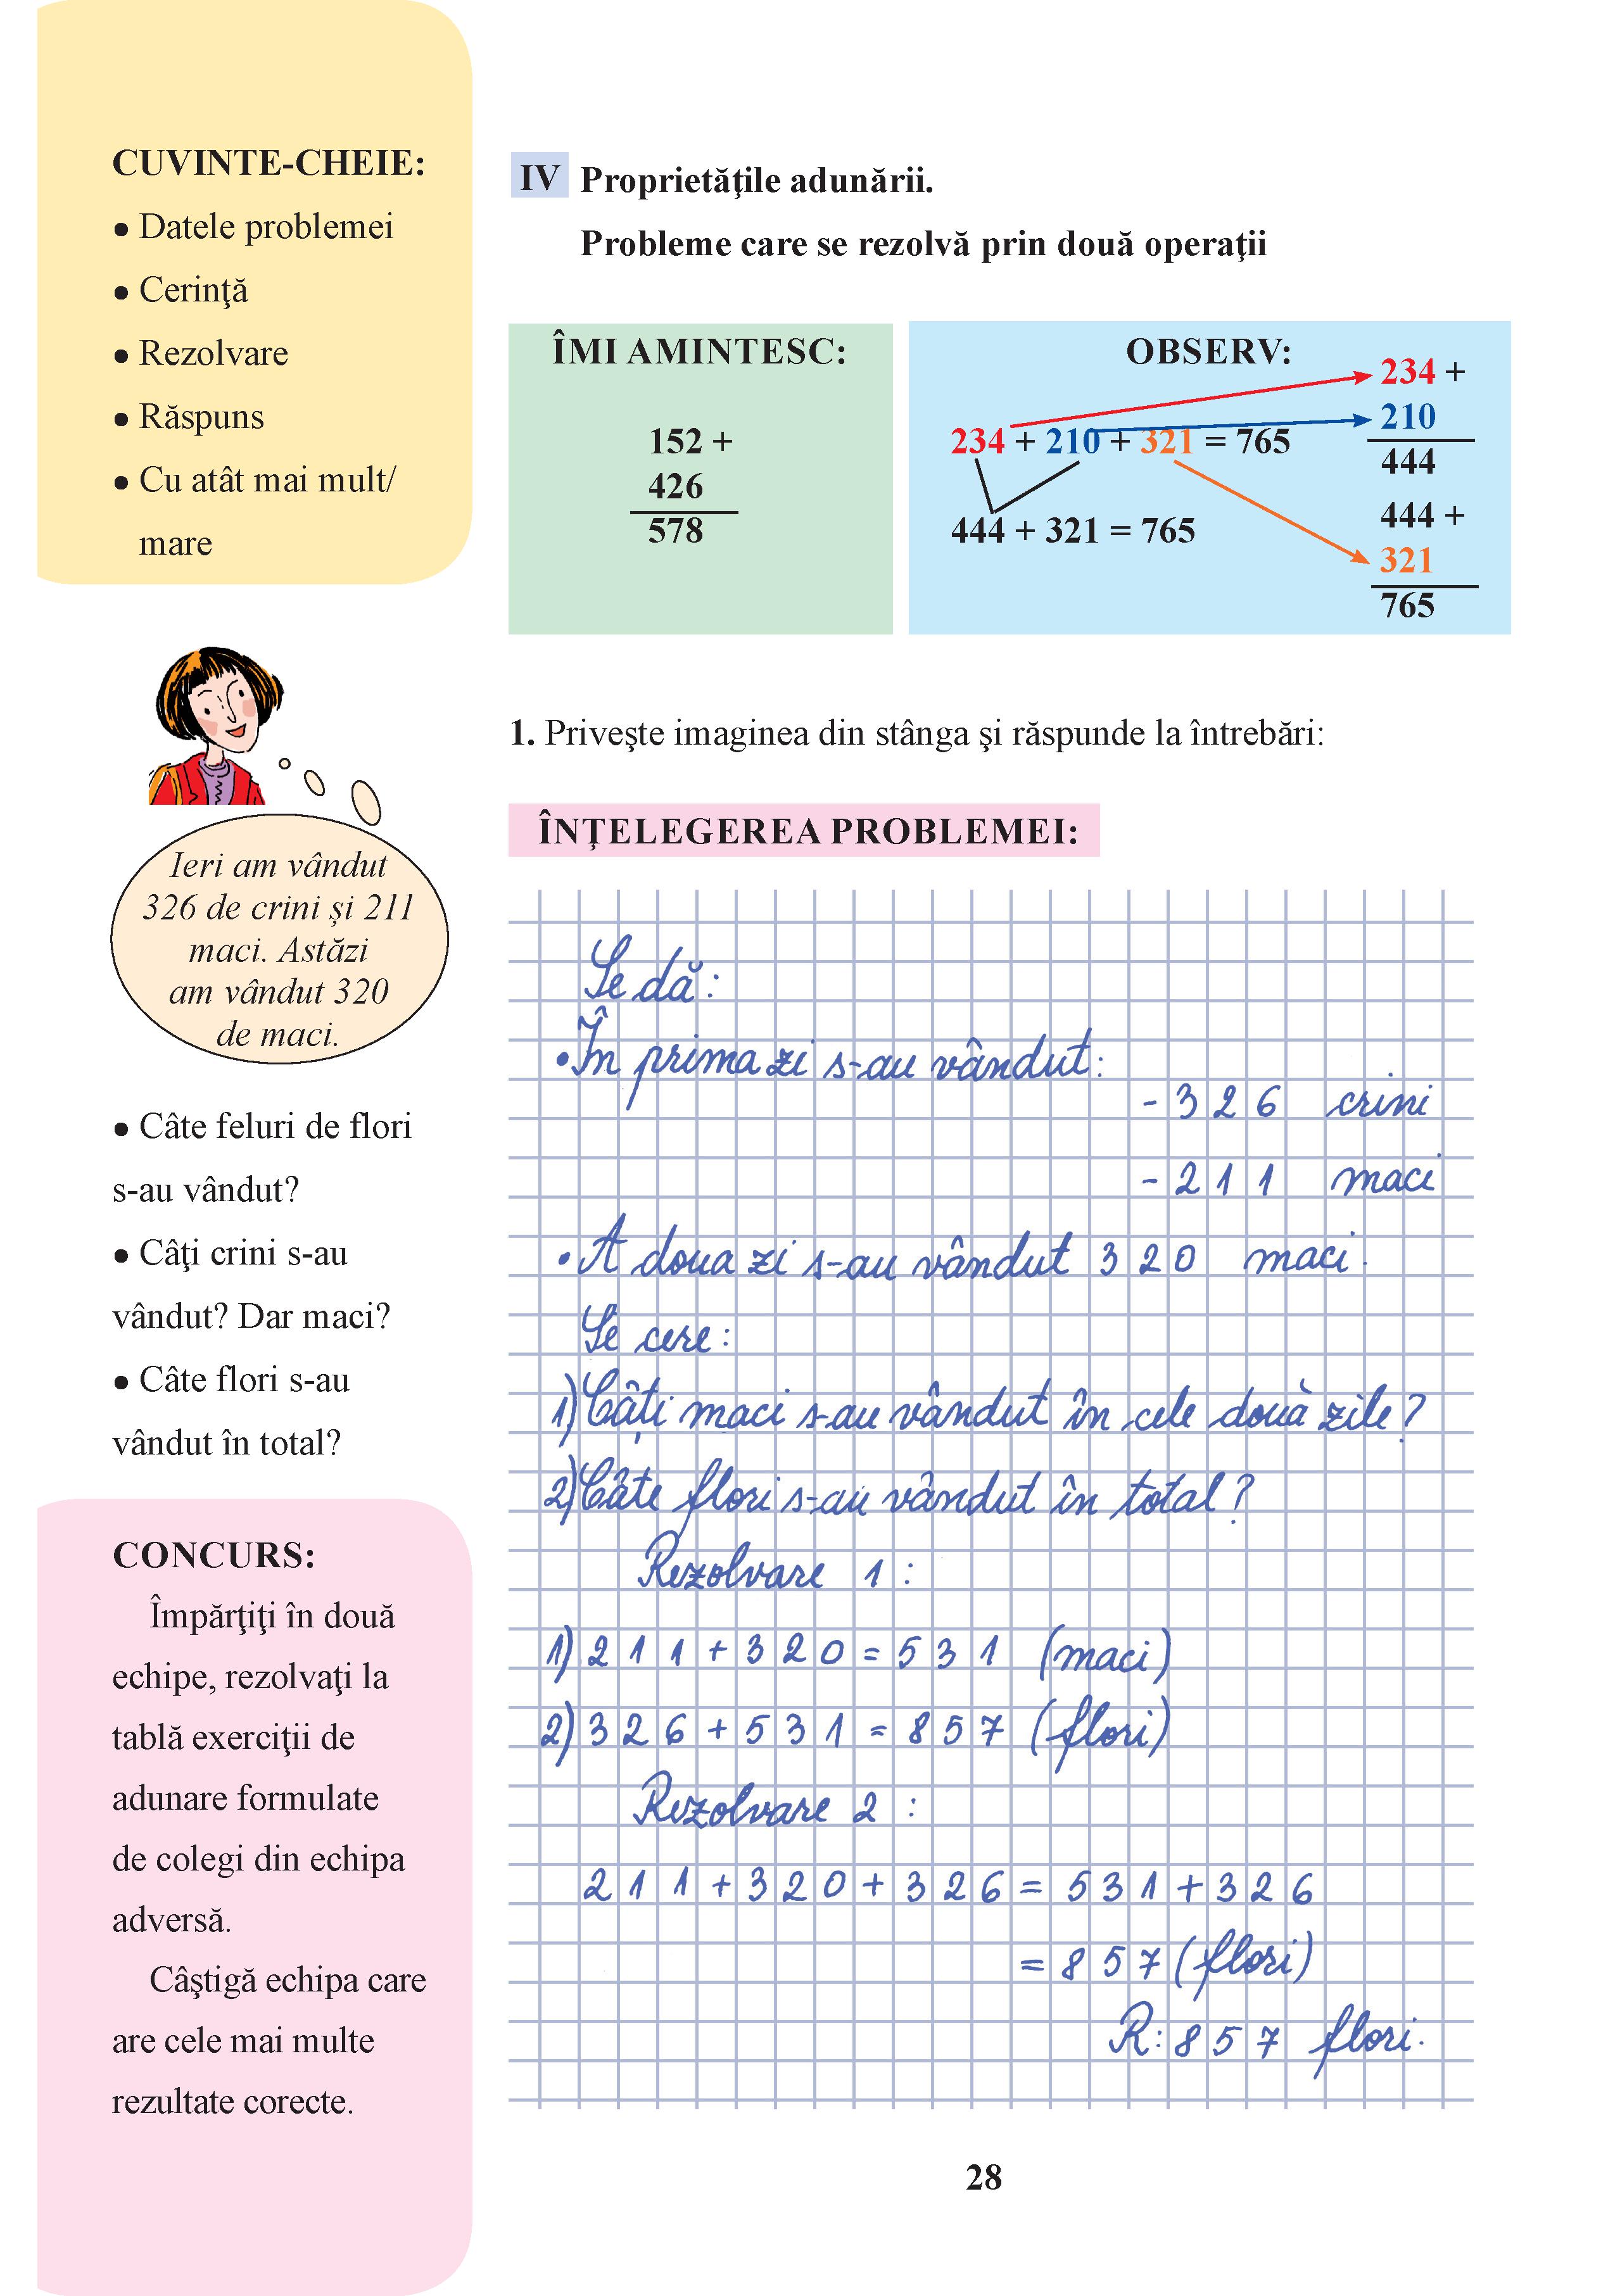 CUVINTE-CHEIE:
• Datele problemei
• Cerinţă
• Rezolvare
• Răspuns
• Cu atât mai mult/
mare
IV Proprietăţile adunării.
Probleme care se rezolvă prin două operaţii
ÎMI AMINTESC:
152 +
426
578
OBSERV:
234 + 210 + 321 = 765
444 + 321 = 765
234 +
210
444
444 +
321
765
1. Priveşte imaginea din stânga şi răspunde la întrebări:
Ieri am vândut
326 de crini și 211
maci. Astăzi
am vândut 320
de maci.
• Câte feluri de flori
s-au vândut?
• Câţi crini s-au
vândut? Dar maci?
• Câte flori s-au
vândut în total?
CONCURS:
Împărţiţi în două
echipe, rezolvaţi la
tablă exerciţii de
adunare formulate
de colegi din echipa
adversă.
Câştigă echipa care
are cele mai multe
rezultate corecte.
ÎNŢELEGEREA PROBLEMEI:
Se dă:
• În prima zi s-au vândut:
- 326 crini
- 211 maci
• A doua zi s-au vândut 320 maci.
Se cere:
1) Câți maci s-au vândut în cele două zile?
2) Câte flori s-au vândut în total?
Rezolvare 1:
1) 211 + 320 = 531 (maci)
2) 326 + 531 = 857 (flori)
Rezolvare 2:
211 + 320 + 326 = 531 + 326
= 857 (flori)
R: 857 flori.
28